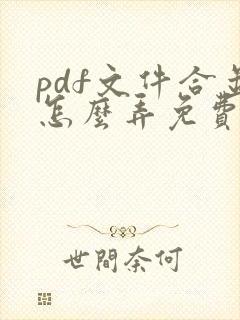 pdf文件合并
怎麼弄免費
世間奈何